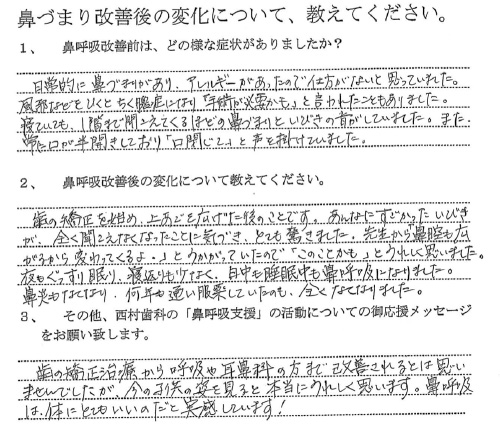 鼻づまり改善後の変化について、教えてください。
1、 鼻呼吸改善前は、どの様な症状がありましたか？
日常的に鼻づまりがあり、アレルギーがあったので仕方がないと思っていました。
風邪などをひくとちく膿症になり「手術が必要かも」と言われたこともありました。
寝ていても、1階まで聞こえてくるほどの鼻づまりといびきの音がしていました。また、
常に口が半開きしており「口閉じて」と声を掛けていました。
2、 鼻呼吸改善後の変化について教えてください。
歯の矯正を始め、上あごを広げた後のことです。あんなにすごかったいびき
が、全く聞こえなくなったことに気づき、とても驚きました。先生から「鼻腔も広
がるから変わってくるよ・」とうかがっていたので「このことかも」とうれしく思いました。
夜もぐっすり眠り、寝返りも少なく、日中も睡眠中も鼻呼吸になりました。
鼻炎もなくなり、何年も通い服薬していたのも、全くなくなりました。
3、 その他、西村歯科の「鼻呼吸支援」の活動についての御応援メッセージ
をお願い致します。
歯の矯正治療から呼吸や耳鼻科の方まで改善されるとは思い
ませんでしたが、今の子供の姿を見ると本当にうれしく思います。鼻呼吸
は、体にとてもいいのだと実感しています！